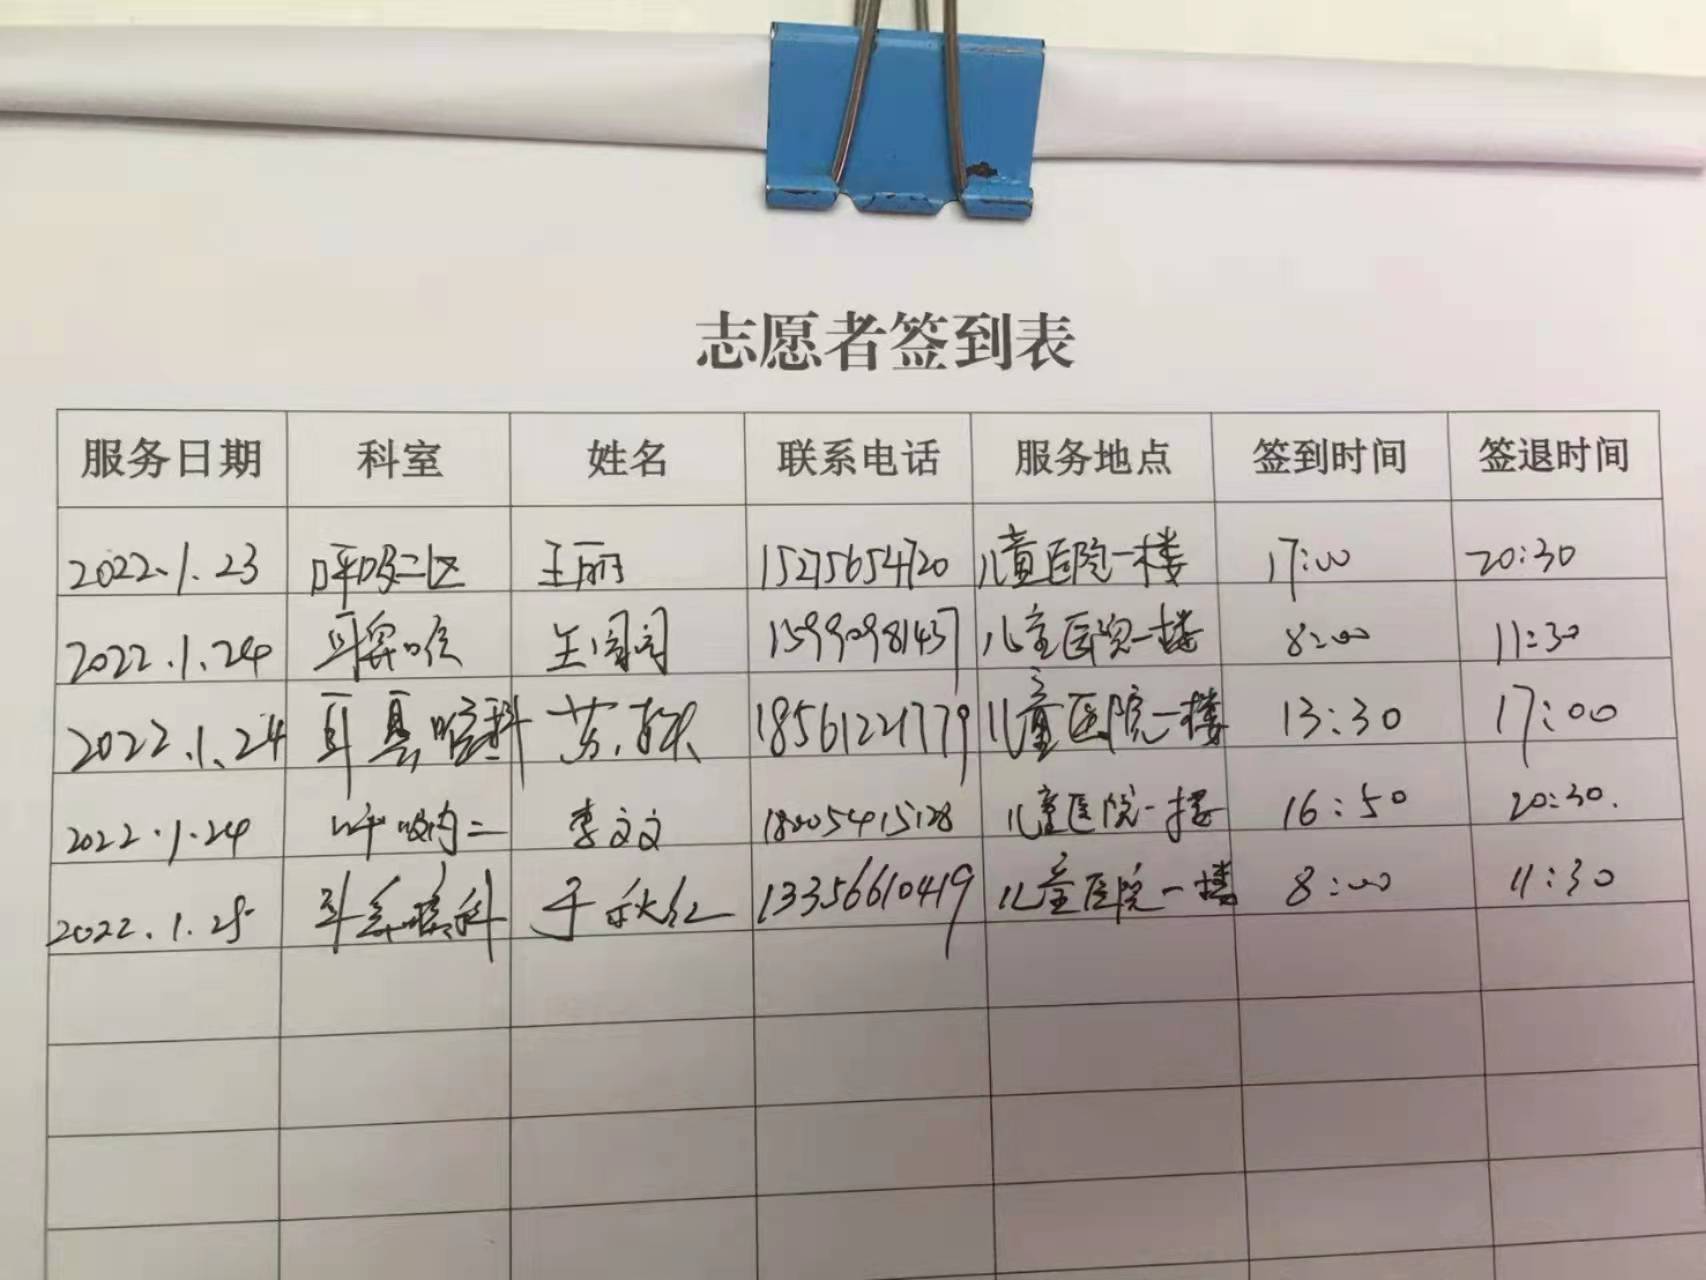 志愿者签到表
服务日期 科室 姓名 联系电话 服务地点 签到时间 签退时间
2022.1.23 呼吸二区 王丽 15275654720 儿童医院一楼 17:00 20:30
2022.1.24 耳鼻喉 王阁阁 15990981437 儿童医院一楼 8:00 11:30
2022.1.24 耳鼻喉科 18561221779 儿童医院一楼 13:30 17:00
2022.1.24 呼吸内二 李文文 18005415128 儿童医院一楼 16:50 20:30.
2022.1.25 耳鼻喉科 于秋红 13356610419 儿童医院一楼 8:00 11:30